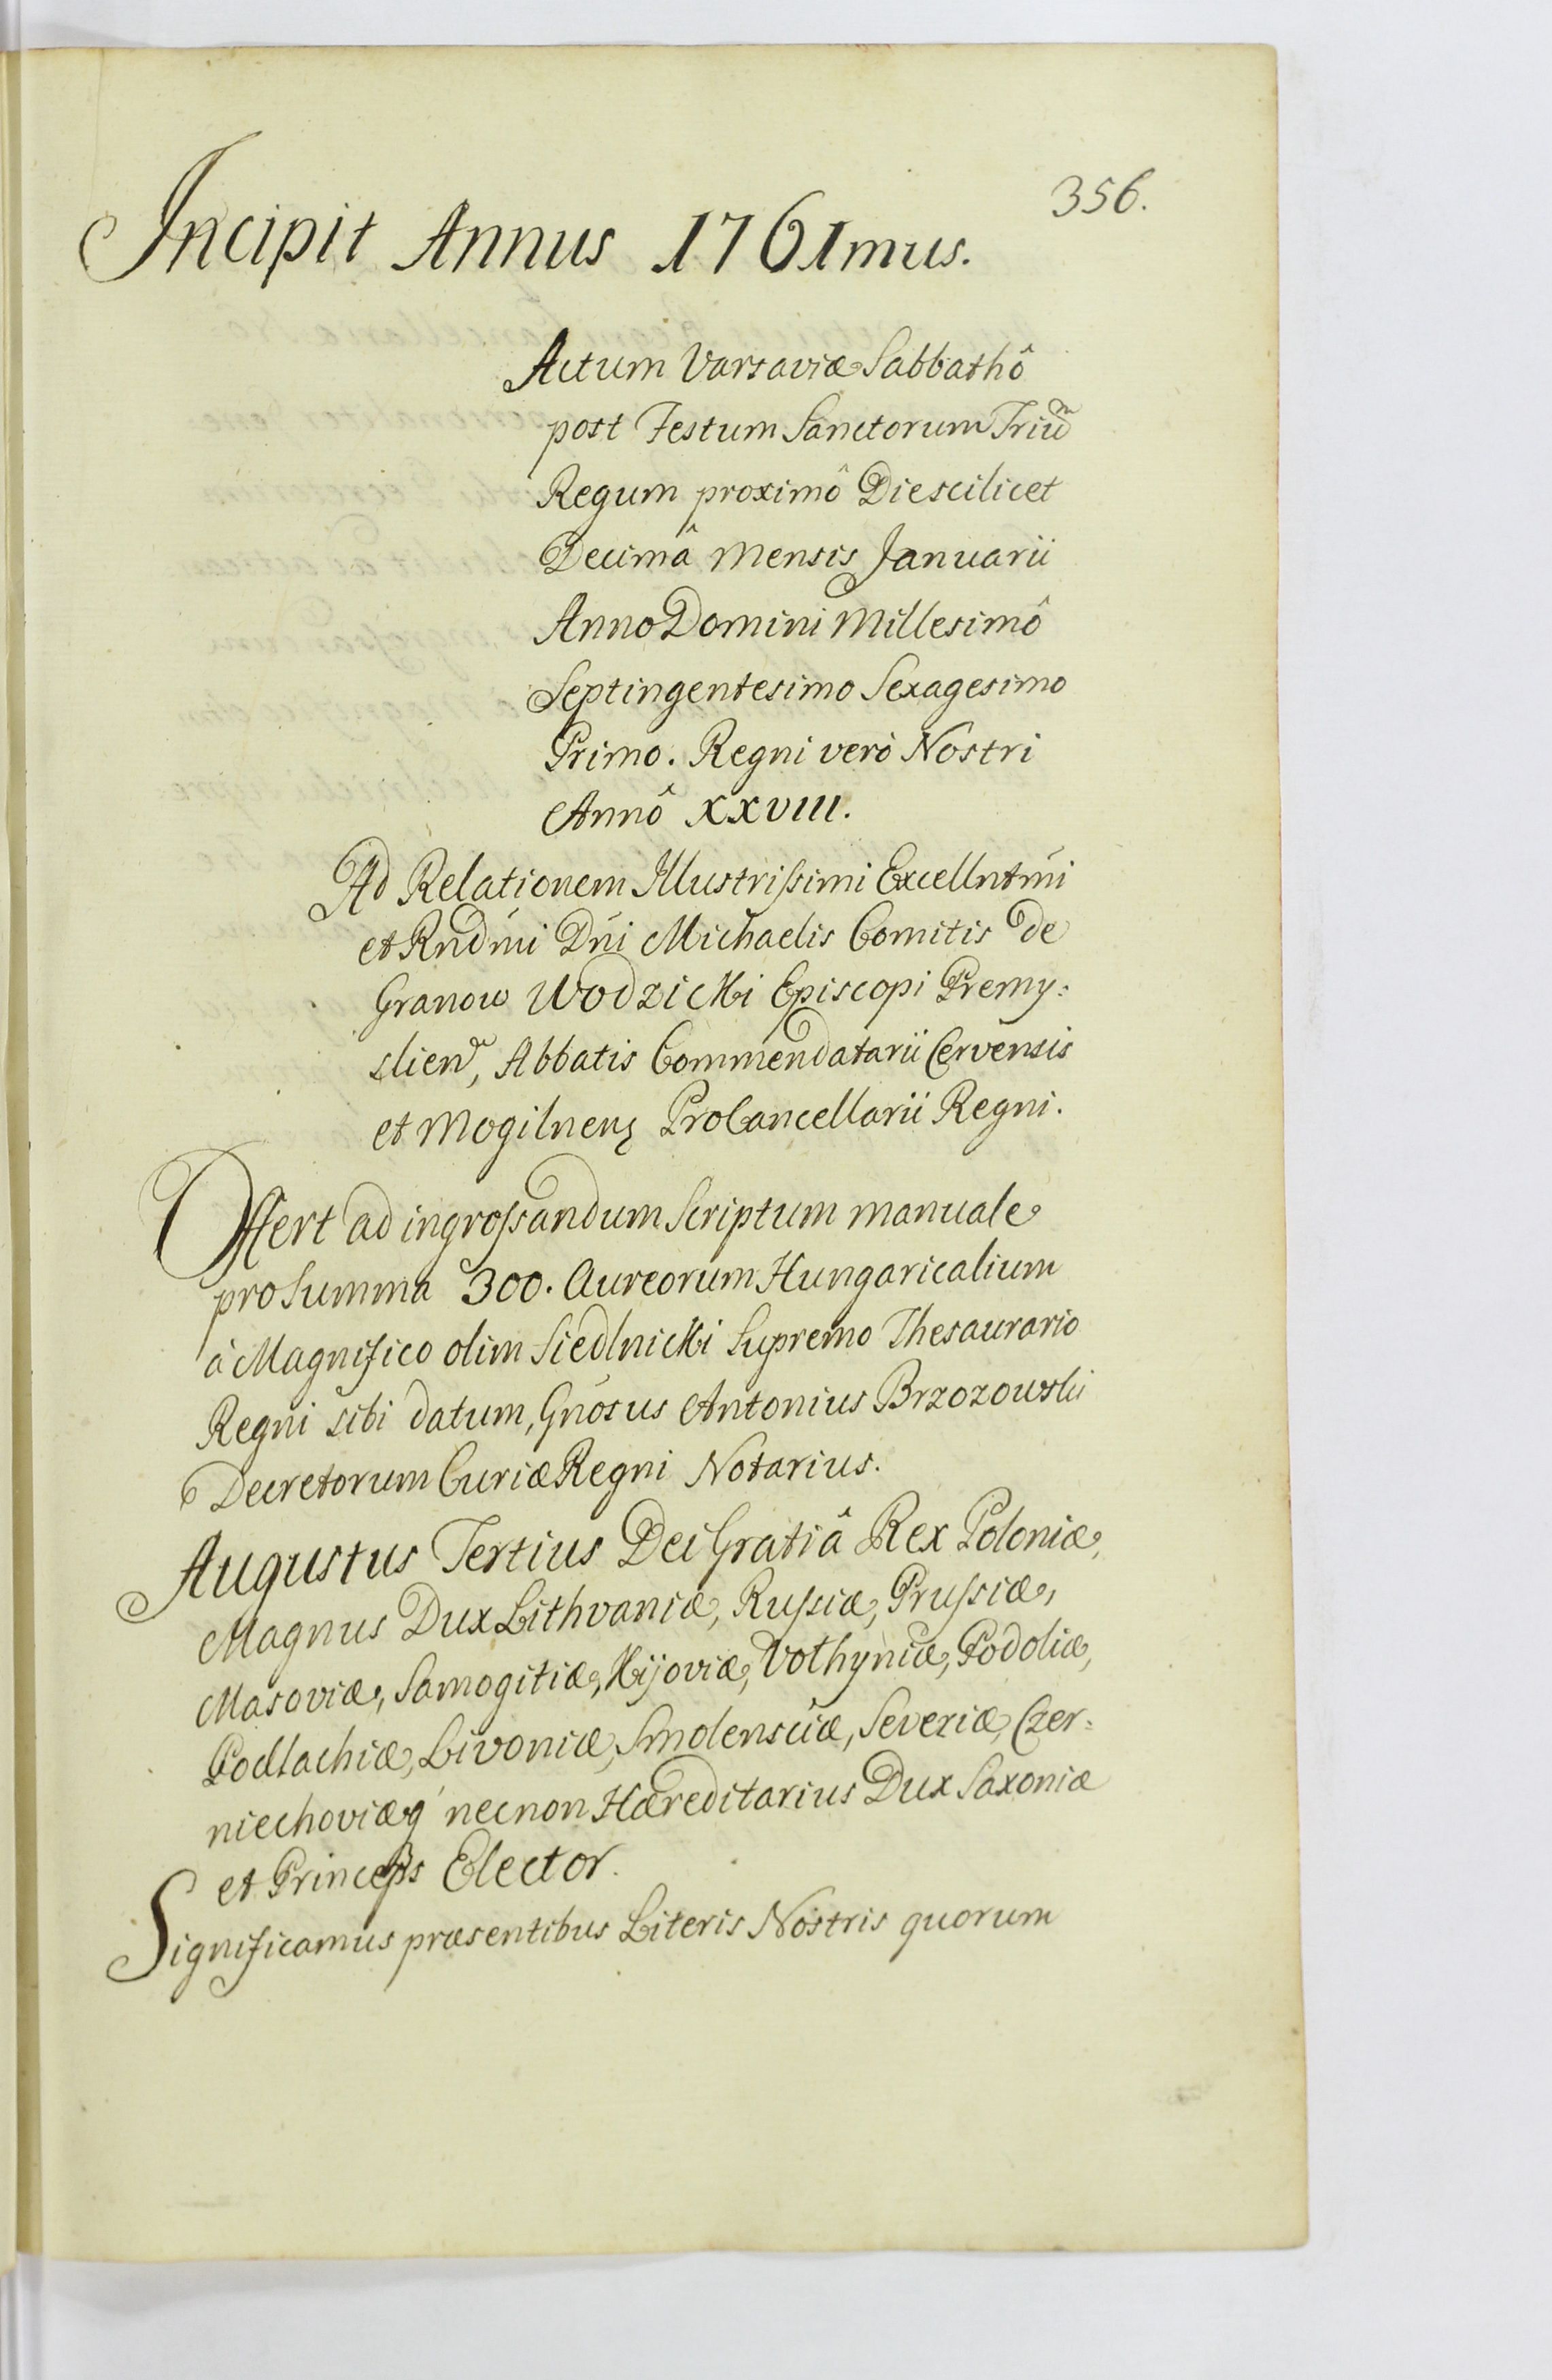 356.
Incipit Annus 1761mus.
Actum Varsaviæ Sabbathô
post Festum Sanctorum Triũ
Regum proximô Die scilicet
Decimâ Mensis Januarii
Anno Domini Millesimô
Septingentesimo Sexagesimo
Primo. Regni verò Nostri
Annô XXVIII.
Ad Relationem Illustrissimi Excellntmi
et Rndmi Dni Michaelis Comitis de
Granow Wodzicki Episcopi Premy:
slien, Abbatis Commendatarii Cervensis
et Mogilnens ProCancellarii Regni.
Offert ad ingrossandum Scriptum manuale
pro Summa 300. Aureorum Hungaricalium
à Magnifico olim Siedlnicki Supremo Thesaurario
Regni sibi datum, Gnosus Antonius Brzozowski
Decretorum Curiæ Regni Notarius.
Augustus Tertius Dei Gratiâ Rex Poloniæ,
Magnus Dux Lithvaniæ, Russiæ, Prussiæ,
Masoviæ, Samogitiæ, Kijoviæ, Volhyniæ, Podoliæ,
Podlachiæ, Livoniæ, Smolensciæ, Severiæ, Czer:
niechoviæq́ necnon Hæreditarius Dux Saxoniæ
et Princeps Elector.
Significamus præsentibus Literis Nostris quorum